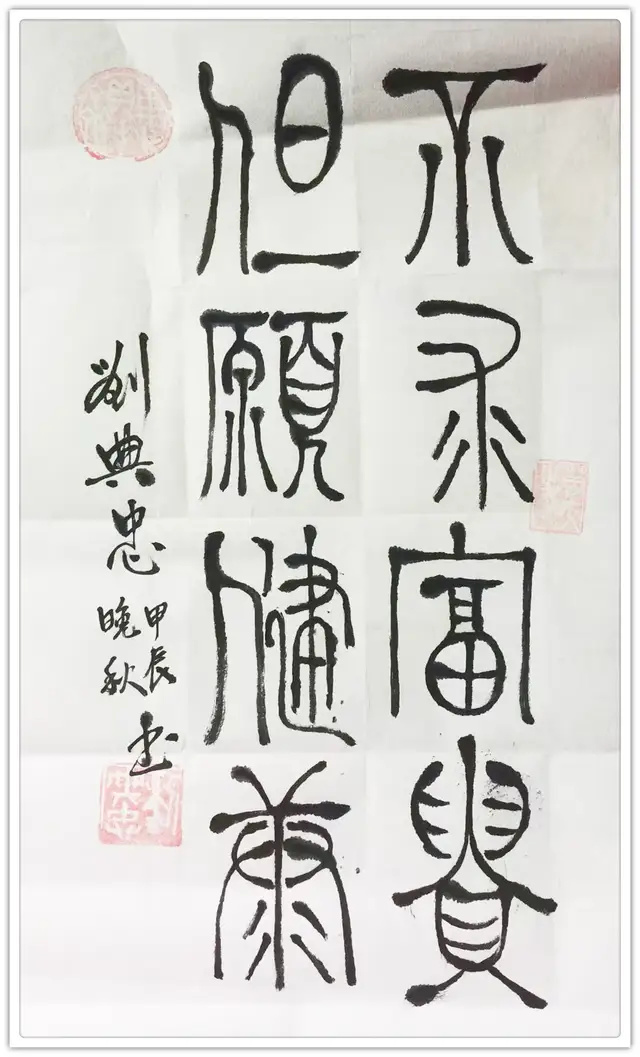 不求富貴
但願健康
劉典忠
甲辰
晚秋
书